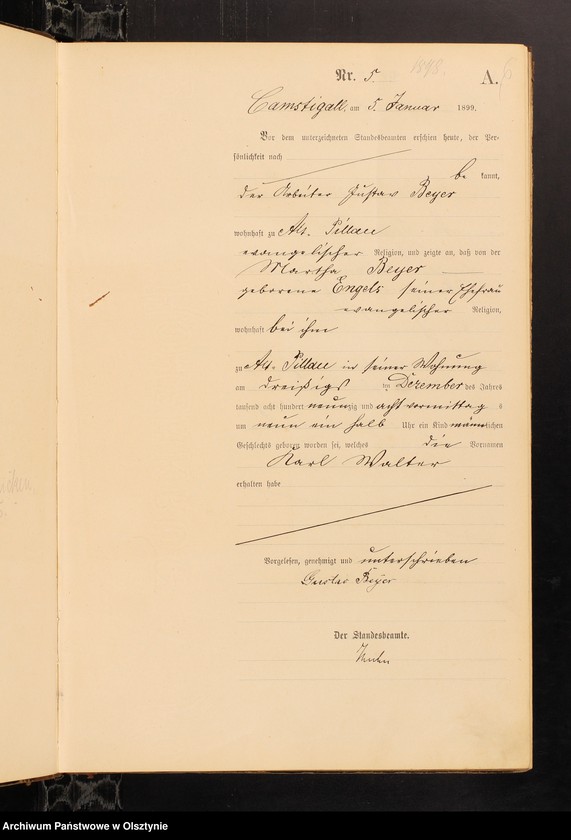 1898.
6
Nr. 5.
A.
Camstigall, am 5. Januar 1899.
Vor dem unterzeichneten Standesbeamten erschien heute, der Per-
sönlichkeit nach
be kannt,
der Arbeiter Gustav Beyer
wohnhaft zu Alt-Pillau
evangelischer Religion, und zeigte an, daß von der
Martha Beyer
geborene Engels seiner Ehefrau
evangelischer Religion,
wohnhaft bei ihm
zu Alt-Pillau in seiner Wohnung
am dreißigs ten Dezember des Jahres
tausend acht hundert neunzig und acht vormittags
um neun ein halb Uhr ein Kind männlichen
Geschlechts geboren worden sei, welches die Vornamen
Karl Walter
erhalten habe
Vorgelesen, genehmigt und unterschrieben
Gustav Beyer
Der Standesbeamte.
Archiwum Państwowe w Olsztynie